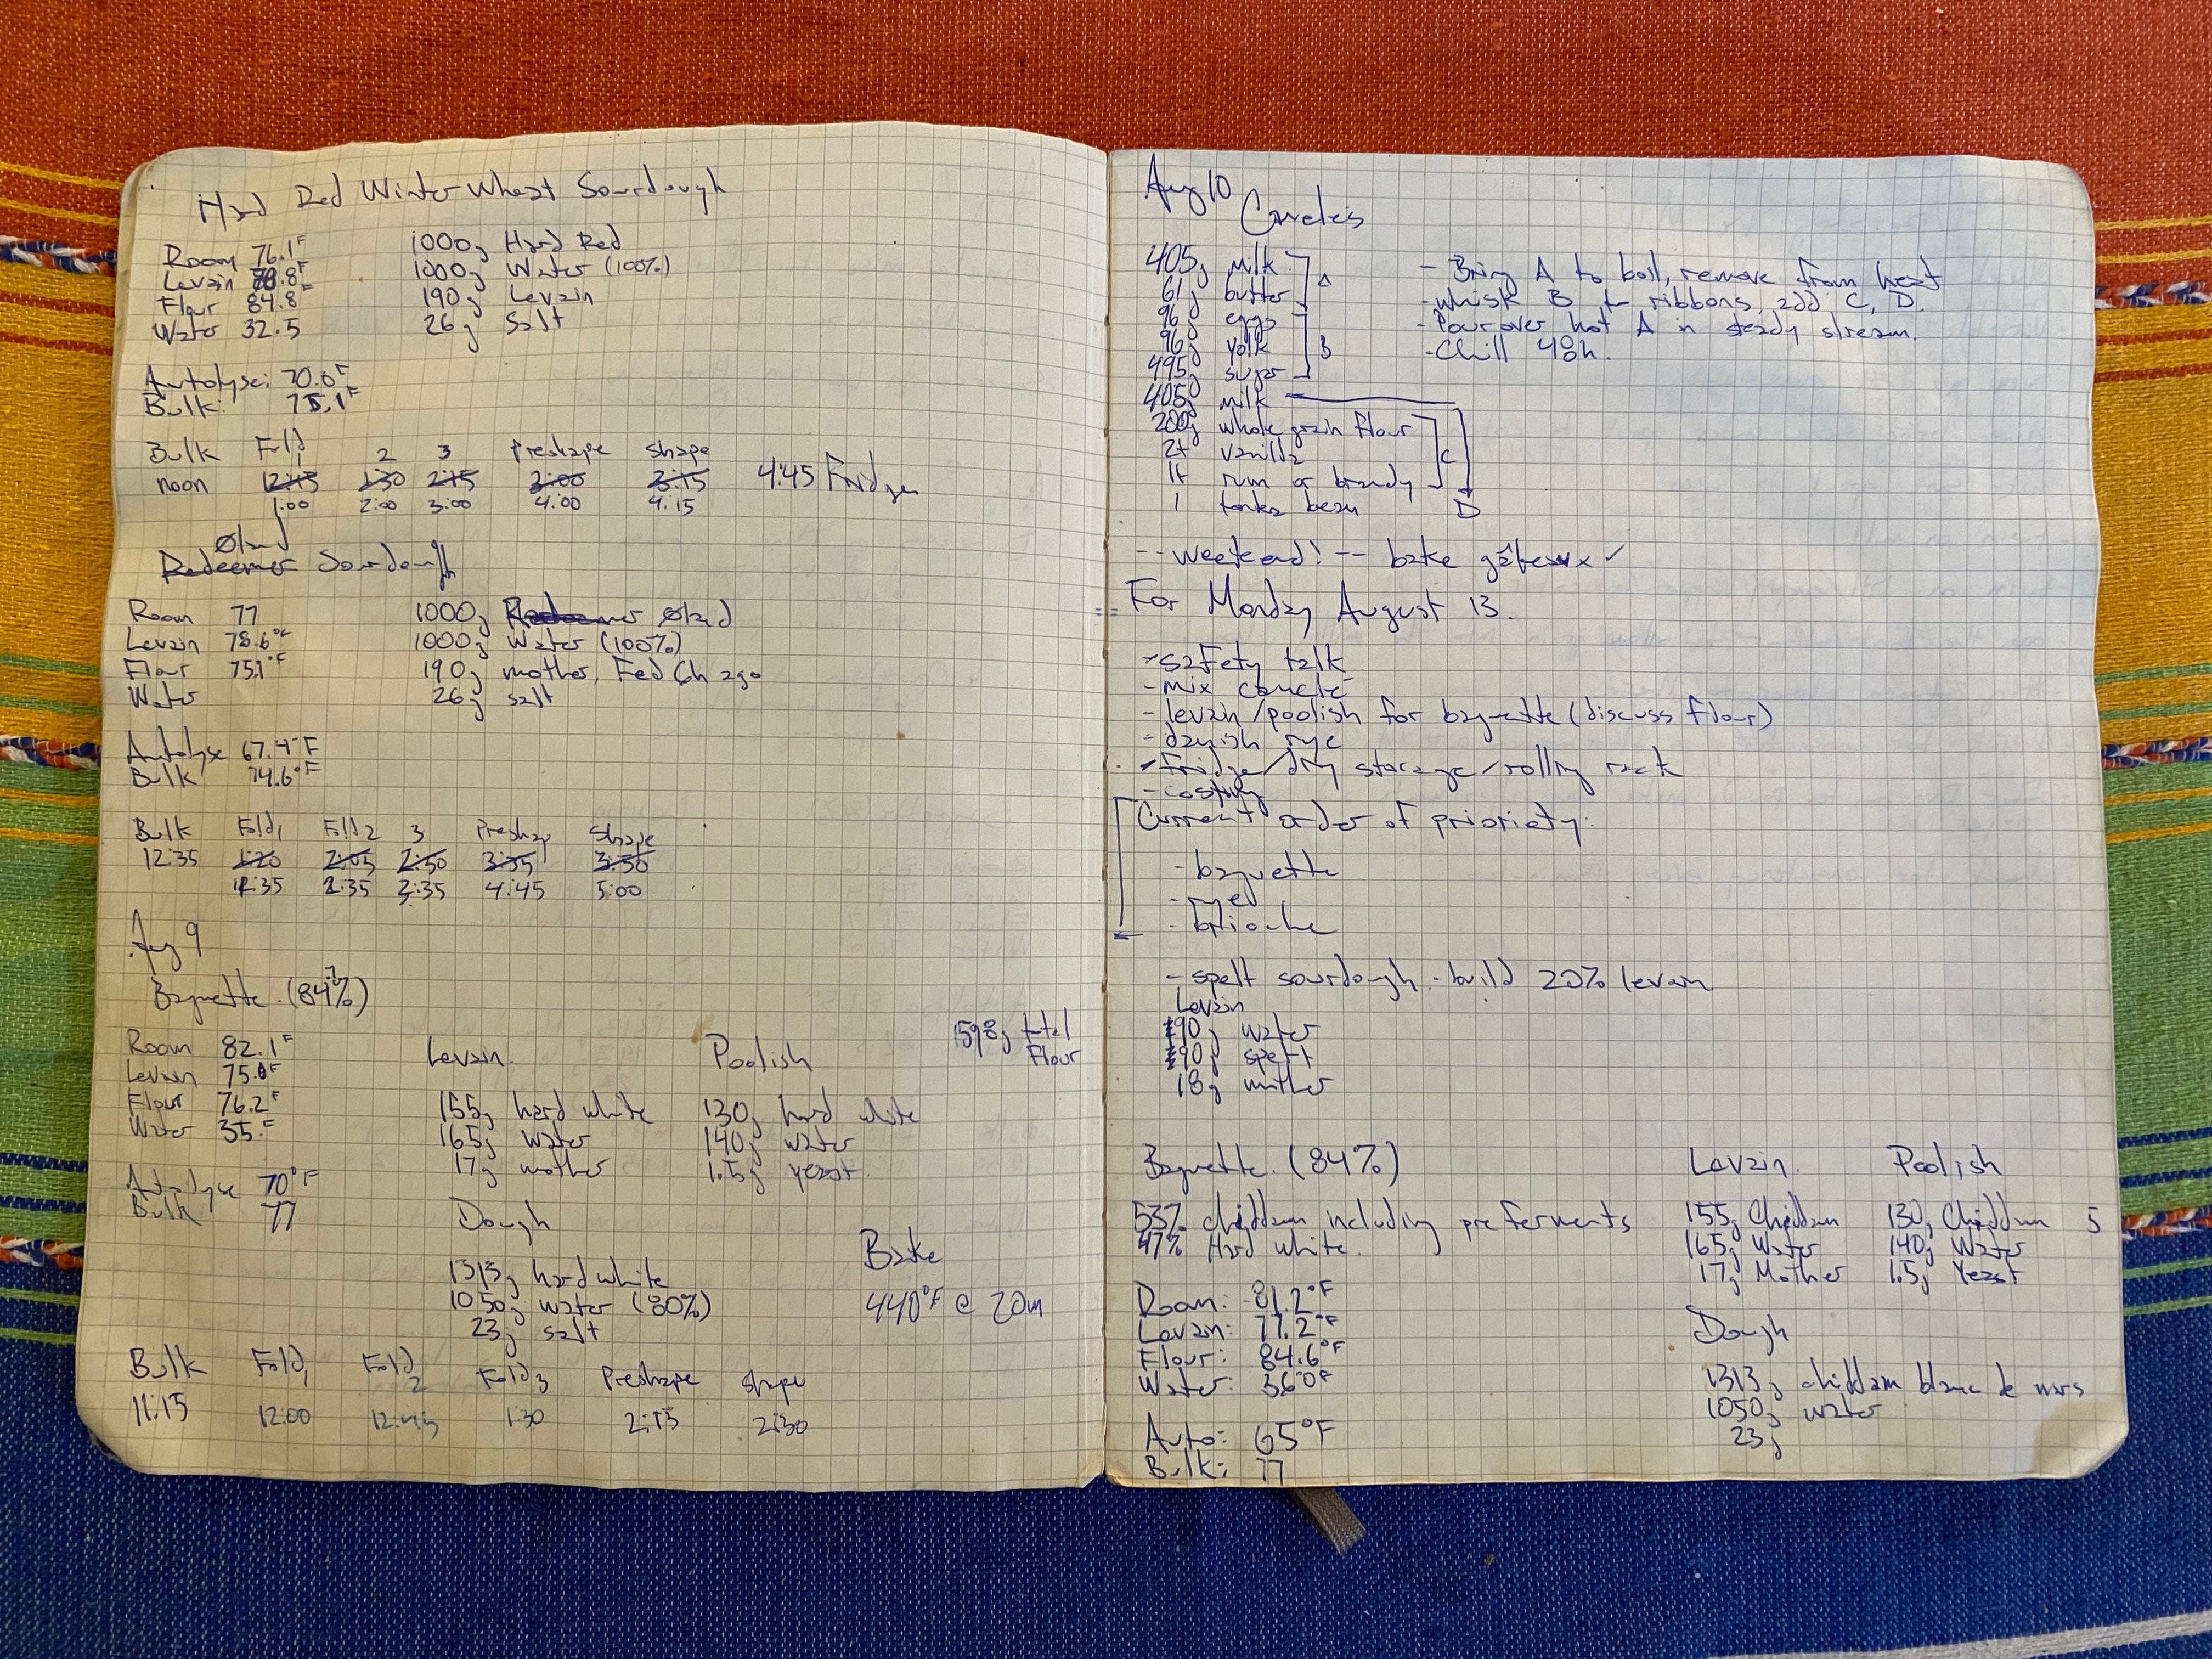 Hard Red Winter Wheat Sourdough
Room 76.1°F
Levain 78.8°F
Flour 84.8°
Water 32.5
1000g Hard Red
1000g Water (100%)
190g Levain
26g Salt
Autolyse: 70.6°F
Bulk: 75.1°F
Bulk Fold 1 2 3 Preshape Shape
noon 12:45 1:30 2:15 3:00 3:15 4:45 Fridge
1:00 2:00 3:00 4:00 4:15
Øland
Redeemer Sourdough
Room 77
Levain 78.6°F
Flour 75.1°F
Water
1000g Redeemer Øland
1000g Water (100%)
190g mother, Fed 6h ago
26g salt
Autolyse 67.4°F
Bulk 74.6°F
Bulk Fold 1 Fold 2 3 Preshap Shape
12:35 1:20 2:05 2:50 3:35 3:50
1:35 2:35 3:35 4:45 5:00
Aug 9
Baguette (84%)
Room 82.1°F
Levain 75.0°F
Flour 76.2°F
Water 35.°F
Autolyse 70°F
Bulk 77
Levain
155g hard white
165g water
17g mother
Poolish
130g hard white
140g water
1.5g yeast
1598g total Flour
Dough
1313g hard white
1050g water (80%)
23g salt
Bake
440°F @ 20m
Bulk Fold 1 Fold 2 Fold 3 Preshape shape
11:15 12:00 12:45 1:30 2:15 2:30
Aug 10
Canelés
405g milk
61g butter
A
96g eggs
96g yolk
495g sugar
B
405g milk
200g whole grain flour
2t vanilla
1t rum or brandy
1 tonka bean
C
D
- Bring A to boil, remove from heat
- whisk B to ribbons, add C, D.
- Pour over hot A in steady stream.
- Chill 48h.
-- weekend! -- bake gâteaux ✓
For Monday August 13.
- safety talk
- mix canelé
- levain/poolish for baguette (discuss flour)
- danish rye
- fridge/dry storage/rolling rack
- costing
Current order of prioriety:
- baguette
- rye
- brioche
- spelt sourdough - build 20% levain
Levain
190g water
190g spelt
18g mother
Baguette (84%)
53% chiddam including preferments
47% Hard white.
Room: 81.2°F
Levain: 77.2°F
Flour: 84.6°F
Water: 36.0°F
Auto: 65°F
Bulk: 77
Levain
155g Chiddam
165g Water
17g Mother
Poolish
130g Chiddam 5
140g Water
1.5g Yeast
Dough
1313g chiddam blanc de mars
1050g water
23g